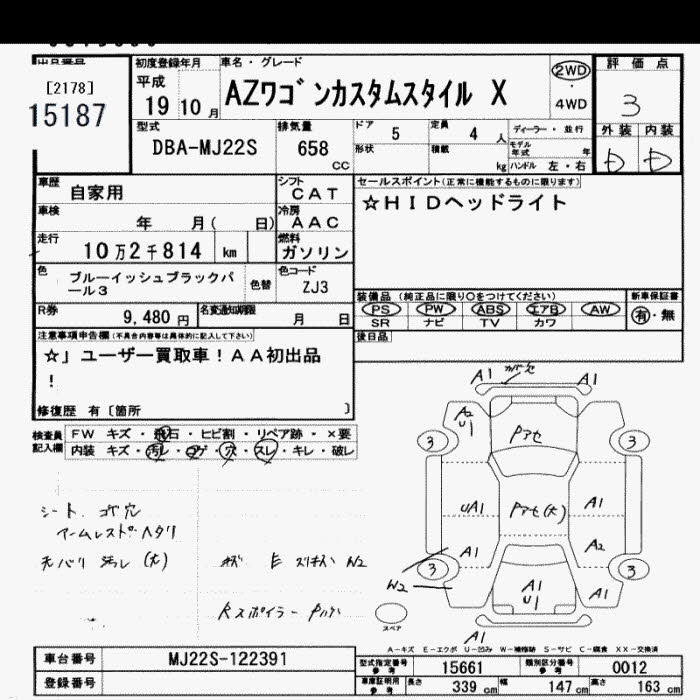 出品番号
[2178]
15187
初度登録年月
平成
19 10 月
車名・グレード
AZワゴンカスタムスタイル X
2WD
・
4WD
評価点
3
外装 内装
D D
型式
DBA-MJ22S
排気量
658
CC
ドア 5
定員 4 人
ディーラー・並行
形状
積載
kg
モデル年式 年
ハンドル 左・右
車歴
自家用
シフト
CAT
車検
年 月( 日)
冷房
AAC
走行
10万2千814 km
燃料
ガソリン
色
ブルーイッシュブラックパール3
色替
色コード
ZJ3
R券
9,480 円
名変通知期限
月 日
セールスポイント(正常に機能するものに限ります)
☆HIDヘッドライト
装備品 (純正品に限り○をつけてください)
新車保証書
PS PW ABS エアB AW
SR ナビ TV カワ
有・無
後日品
注意事項申告欄(不具合内容等は具体的に記入して下さい)
☆」ユーザー買取車!AA初出品
!
修復歴 有〔箇所 〕
検査員
記入欄
FW キズ・飛石・ヒビ割・リペア跡・×要
内装 キズ・汚レ・コゲ・穴・スレ・キレ・破レ
シート コゲ穴
アームレスト ヘタリ
天バリ 汚レ (大)
A1
A1
A2
U1
Pアセ
3
3
UA1
Pアセ(大)
A1
A1
A2
3
3
W2
A1
U1
A1
スペア
A1
A-キズ E-エクボ U-凹み W-補修跡 S-サビ C-腐食 XX-交換済
車台番号
MJ22S-122391
登録番号
型式指定番号 参考
15661
類別区分番号 参考
0012
車庫証明用 参考
長さ 339 cm
幅 147 cm
高さ 163 cm